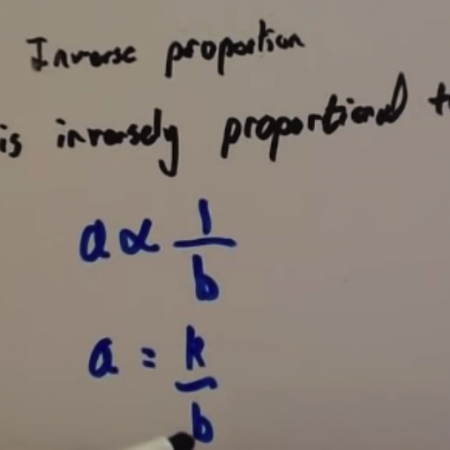 Inverse proportion
is inversely proportional t
a ∝ 1/b
a = k/b